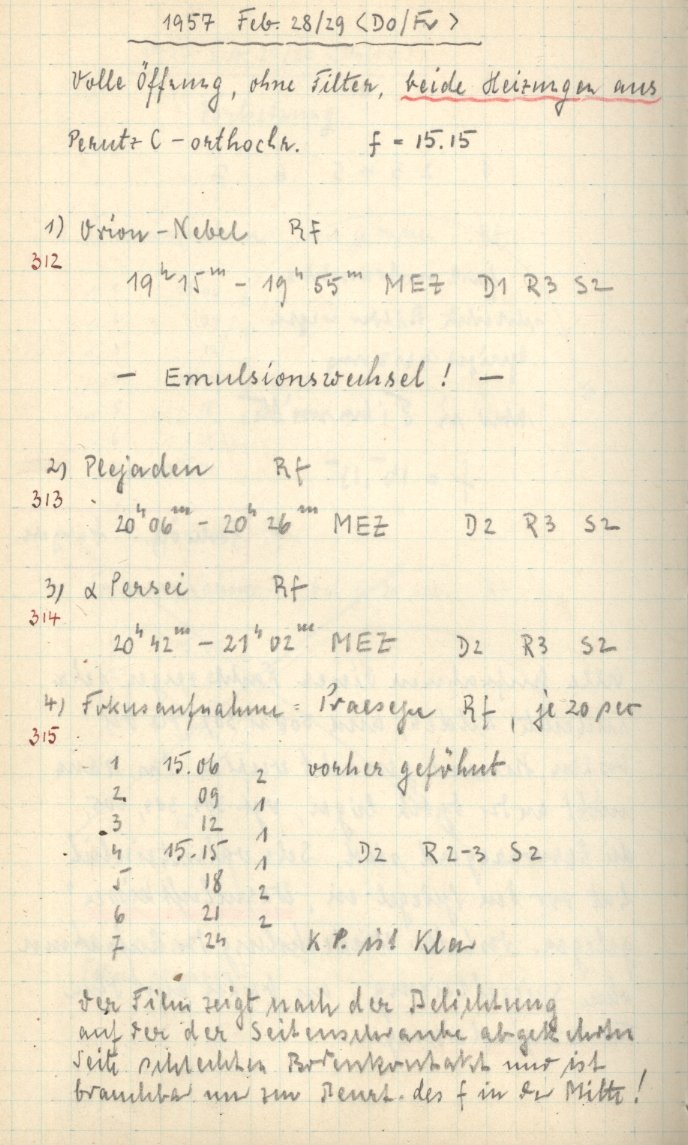 1957 Feb. 28/29 <Do/Fr>
Volle Öffnung, ohne Filter, beide Heizungen aus
Perutz C-orthochr. f = 15.15
1) Orion-Nebel Rf
312
19h 15m - 19h 55m MEZ D1 R3 S2
- Emulsionswechsel! -
2) Plejaden Rf
313
20h 06m - 20h 26m MEZ D2 R3 S2
3) α Persei Rf
314
20h 42m - 21h 02m MEZ D2 R3 S2
4) Fokusaufnahme = Praesepe Rf, je 20 sec
315
1 15.06 2 vorher geföhnt
2 09 1
3 12 1
4 15.15 1 D2 R2-3 S2
5 18 2
6 21 2
7 24 K.P. ist klar
Der Film zeigt nach der Belichtung
auf der der Seitenschraube abgekehrten
Seite schlechten Bodenkontakt und ist
brauchbar nur zur Beurt. des f in der Mitte!